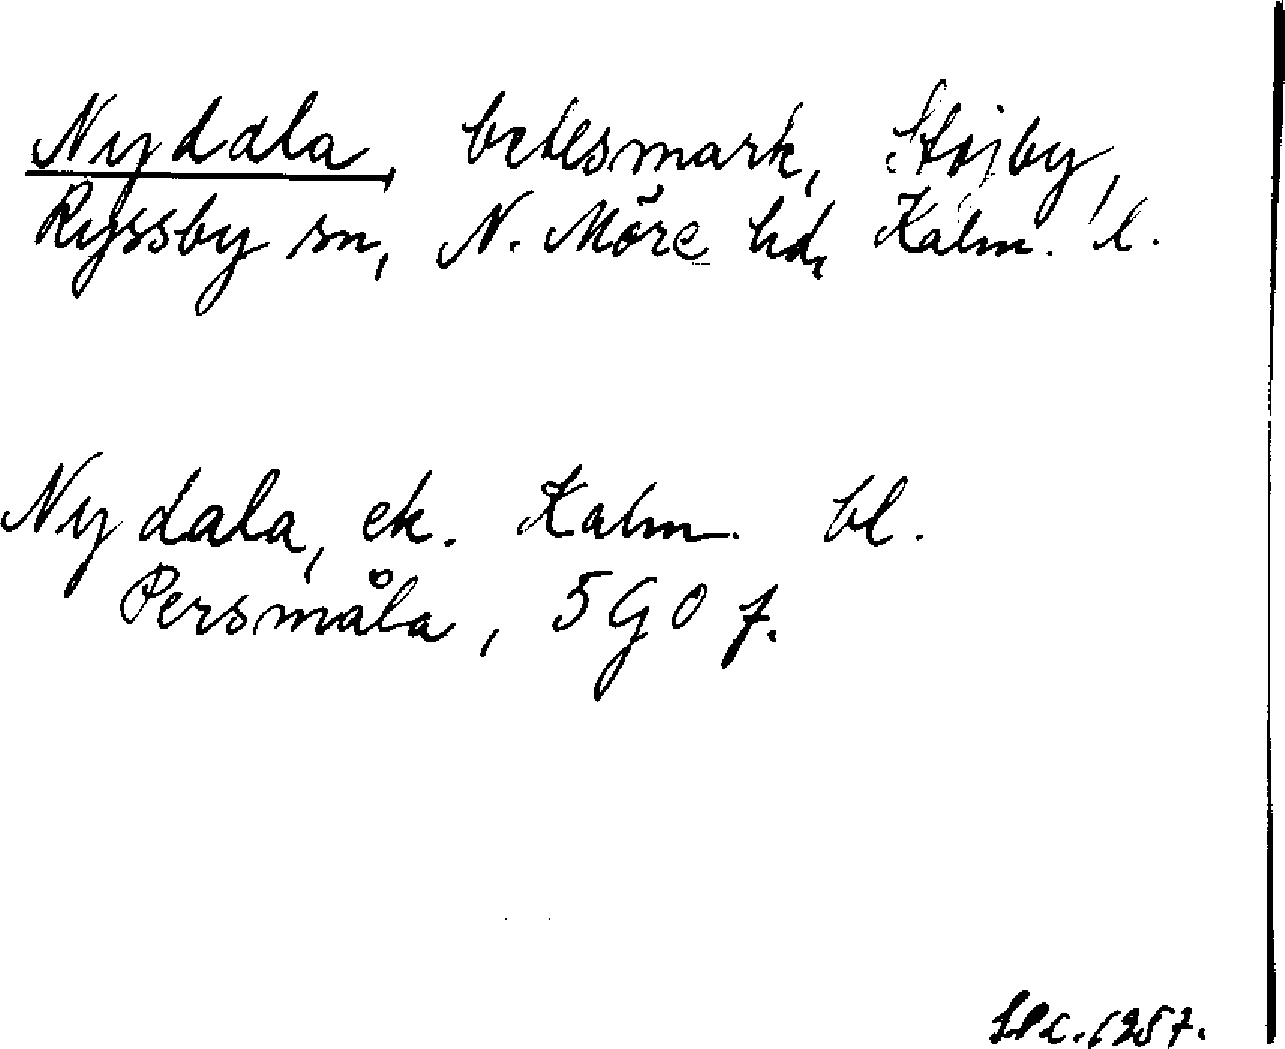 Nydala, betesmark, Stojby,
Ryssby sn, N. Möre hd, Kalm. l.
Nydala, ek. Kalm. bl.
Persmåla, 5 G O f.
1957.